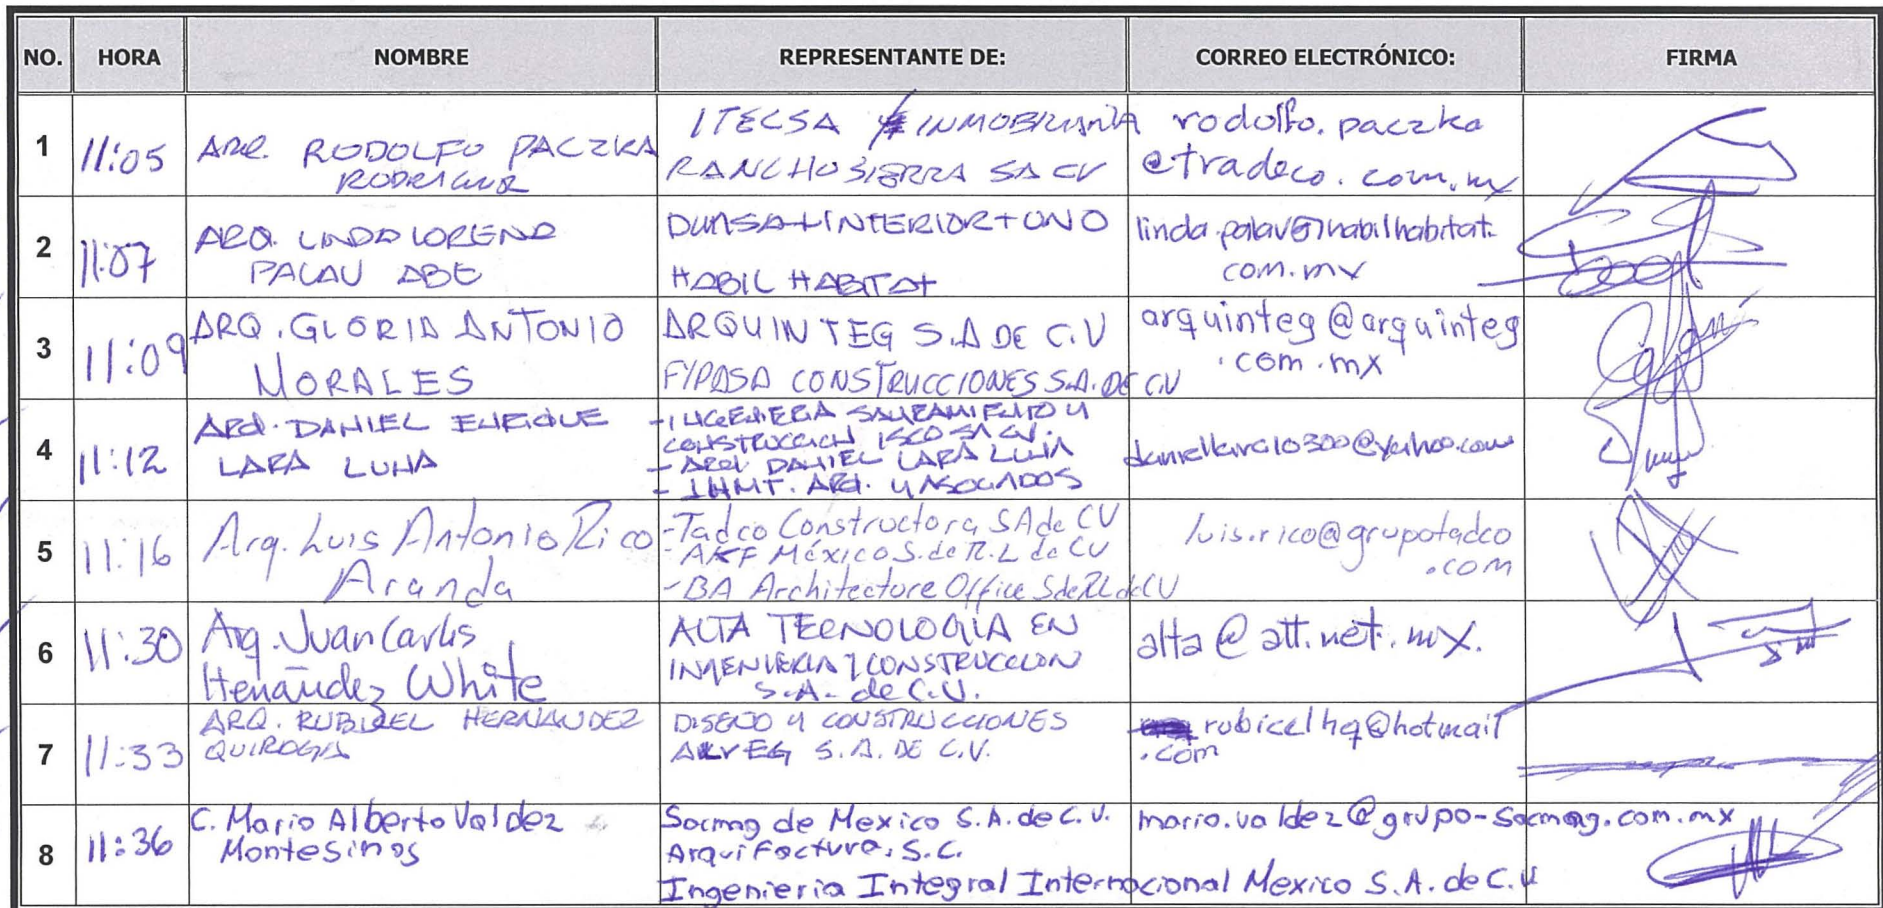 NO. HORA NOMBRE REPRESENTANTE DE: CORREO ELECTRÓNICO: FIRMA
1 11:05 ARQ. RODOLFO PACZKA RODRIGUEZ ITECSA INMOBILIARIA rodolfo.paczka
RANCHO SIERRA SA CV @tradeco.com.mx
2 11:07 ARQ. LINDA LORENA DUMSA+INTERIOR+UNO linda.palau@habilhabitat.
PALAU ABE HABIL HABITAT com.mx
3 11:09 ARQ. GLORIA ANTONIO ARQUINTEG S.A DE C.V arquinteg@arquinteg
MORALES FYPASA CONSTRUCCIONES S.A. DE C.V .com.mx
4 11:12 ARQ. DANIEL ENRIQUE LARA LUNA
- INGENIERIA SANEAMIENTO Y
CONSTRUCCION ISCO SA CV.
- ARQ. DANIEL LARA LUNA
- INMT. ARQ. Y ASOCIADOS
daniellara10300@yahoo.com
5 11:16 Arq. Luis Antonio Rico Aranda
- Tadco Constructora, SA de CV
- AKF México S. de R.L de CV
- BA Architecture Office S de RL de CV
luis.rico@grupotadco
.com
6 11:30 Arq. Juan Carlos
Henández White
ALTA TECNOLOGIA EN
INGENIERIA Y CONSTRUCCION
S.A. de C.V.
alta@att.net.mx.
7 11:33 ARQ. RUBICEL HERNANDEZ
QUIROGA
DISEÑO Y CONSTRUCCIONES
ALVEG S.A. DE C.V.
rubicelhq@hotmail
.com
8 11:36 C. Mario Alberto Valdez
Montesinos
Socmag de Mexico S.A. de C.V.
Arquifactura, S.C.
Ingenieria Integral Internacional Mexico S.A. de C.V
mario.valdez@grupo-socmag.com.mx